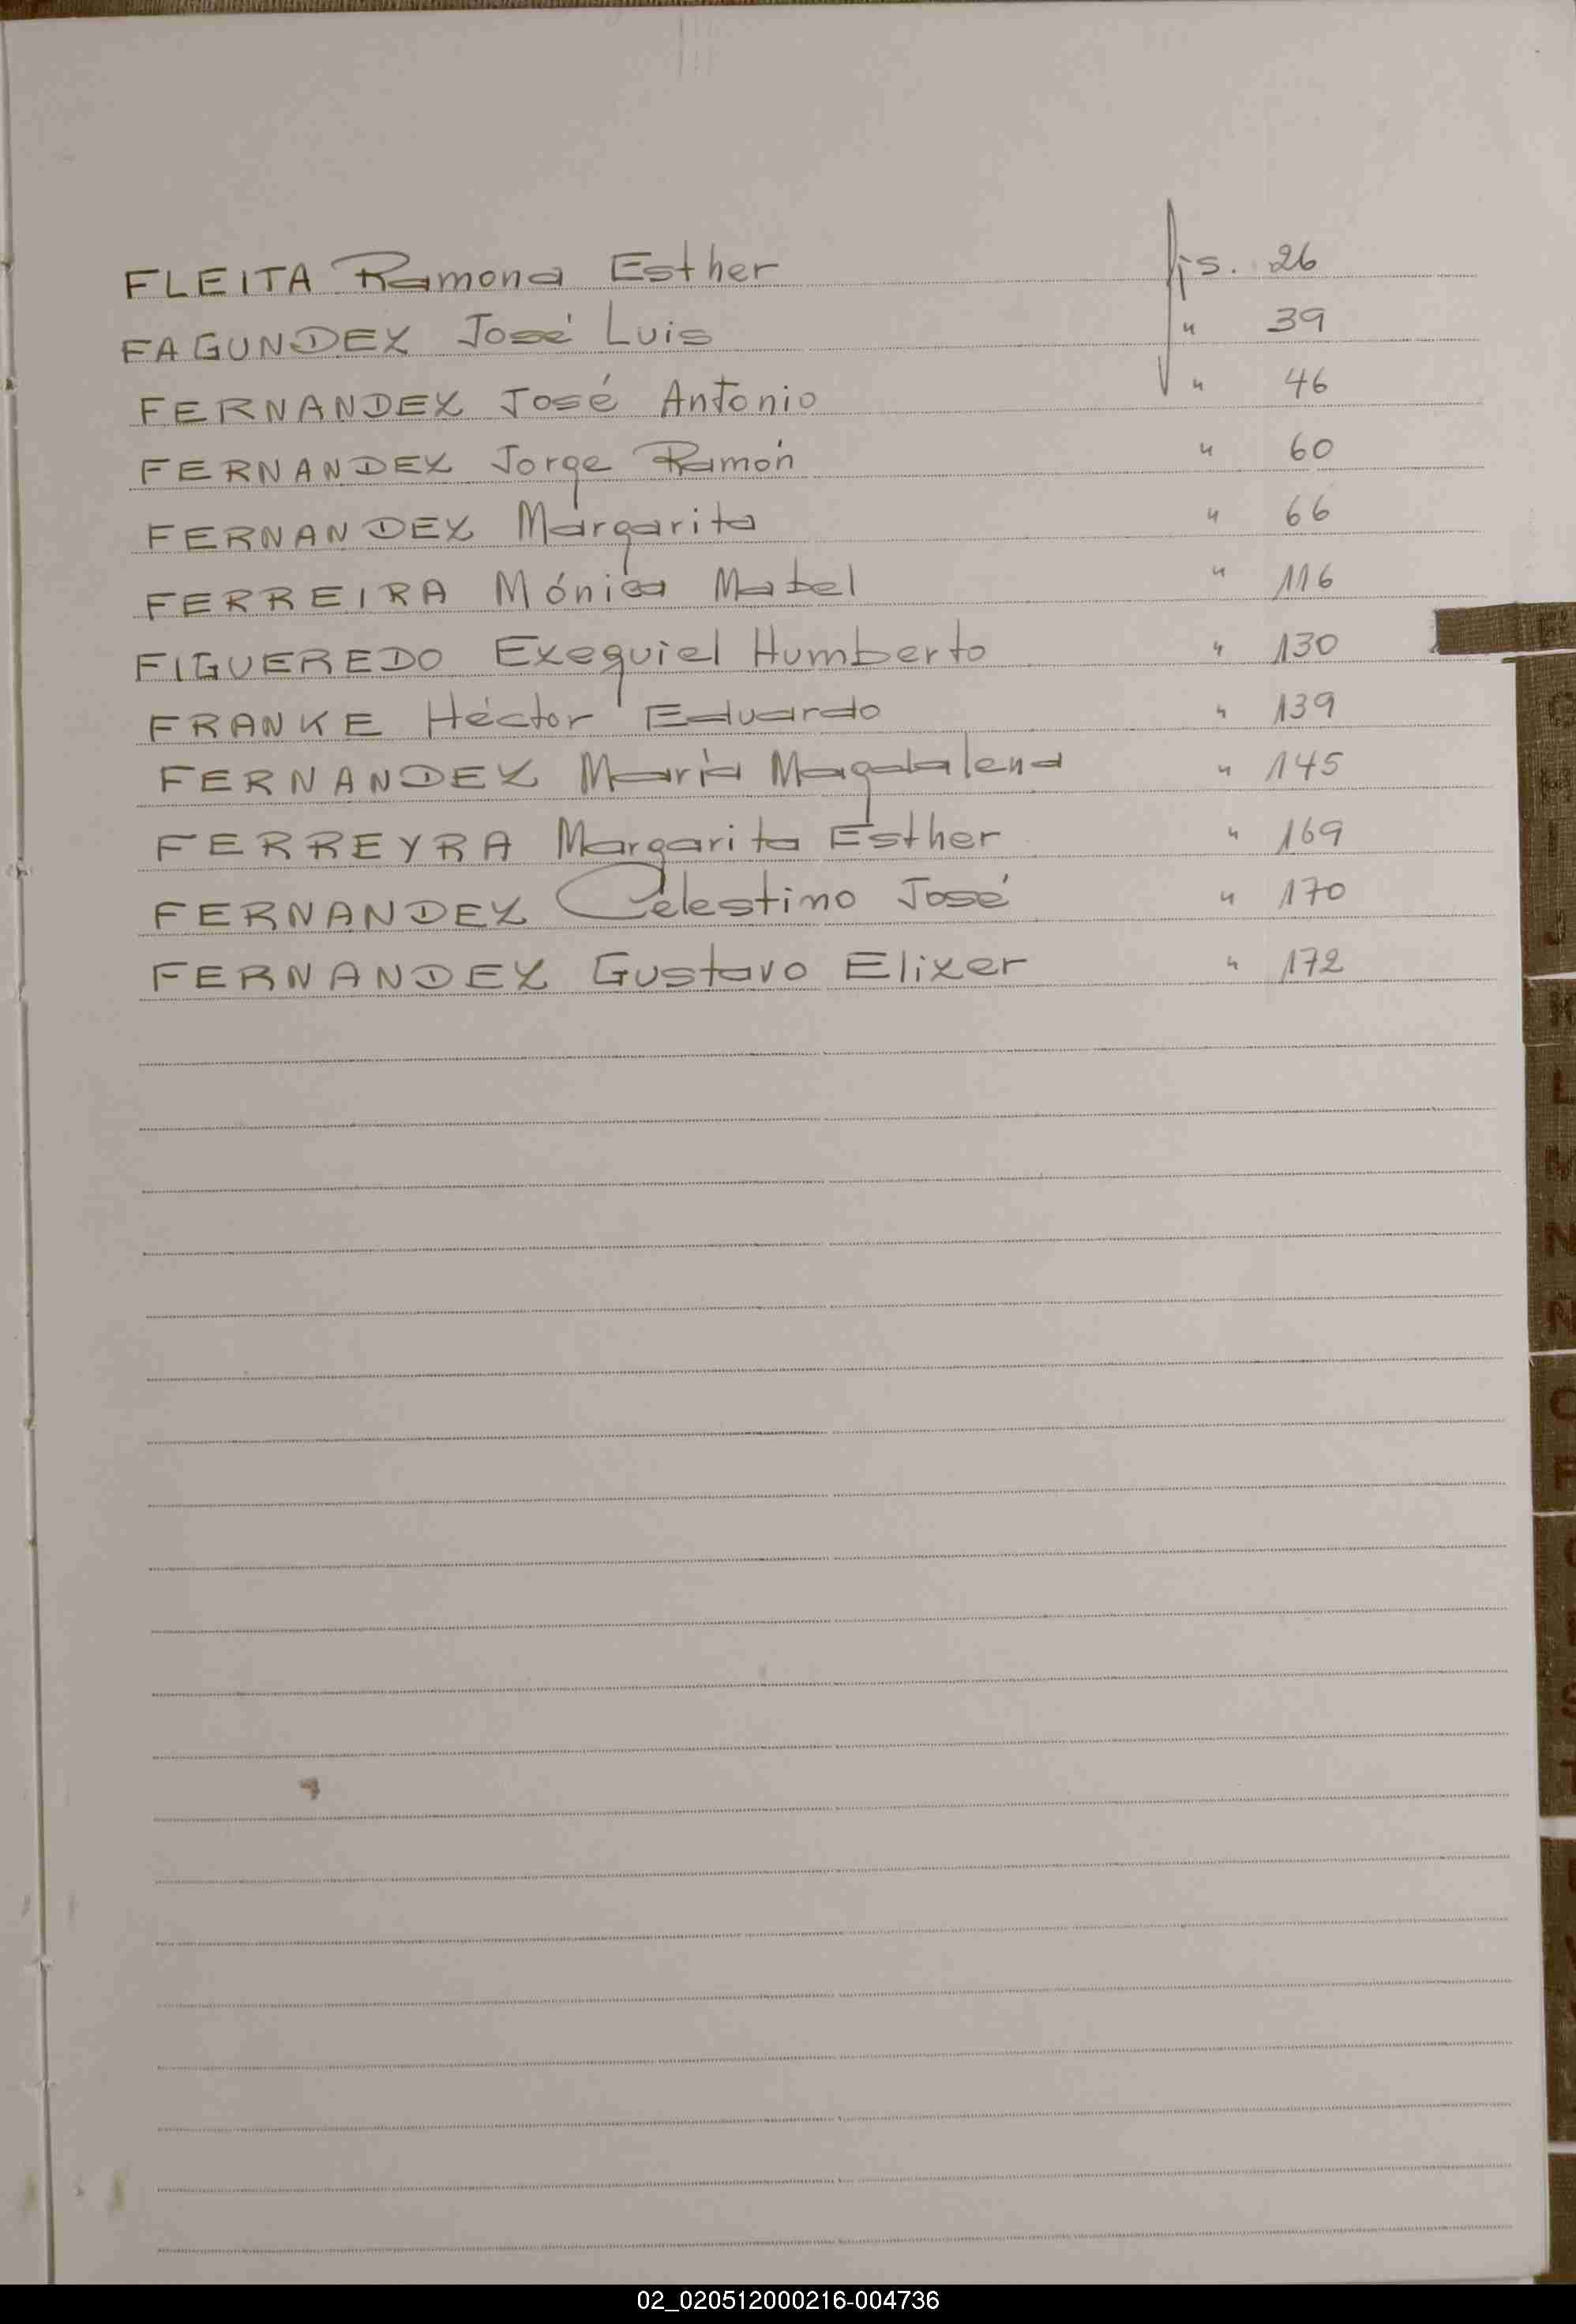 FLEITA Ramona Esther fjs. 26
FAGUNDEZ José Luis " 39
FERNANDEZ José Antonio " 46
FERNANDEZ Jorge Ramón " 60
FERNANDEZ Margarita " 66
FERREIRA Mónica Mabel " 116
FIGUEREDO Exequiel Humberto " 130
FRANKE Héctor Eduardo " 139
FERNANDEZ María Magdalena " 145
FERREYRA Margarita Esther " 169
FERNANDEZ Celestino José " 170
FERNANDEZ Gustavo Elizer " 172
F
G
H
I
J
K
L
M
N
Ñ
O
P
S
T
02_020512000216-004736